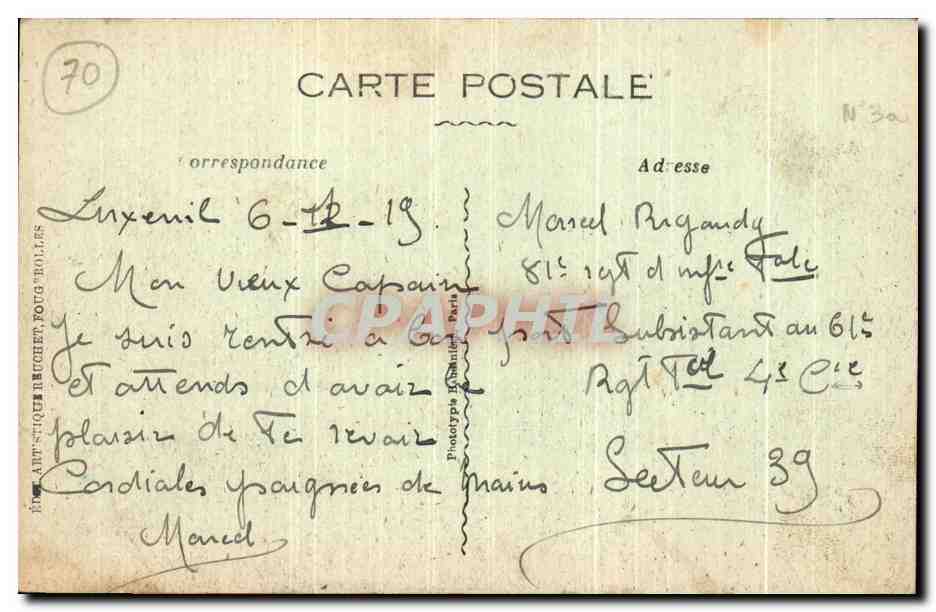 70
CARTE POSTALE
N° 3a
Correspondance
Adresse
Luxeuil 6-12-19
Mon vieux Capsain
Je suis rentré à bon port
et attends d avoir le
plaisir de te revoir
Cordiales poignées de mains
Marcel
Marcel Rigaudy
81e rgt d infie Tale
Subsistant au 61e
Rgt Tal 4e Cie
Secteur 39
ÉDIT. ARTISTIQUE REUCHET, FOUGEROLLES
Phototypie Paris
CPAPHIL